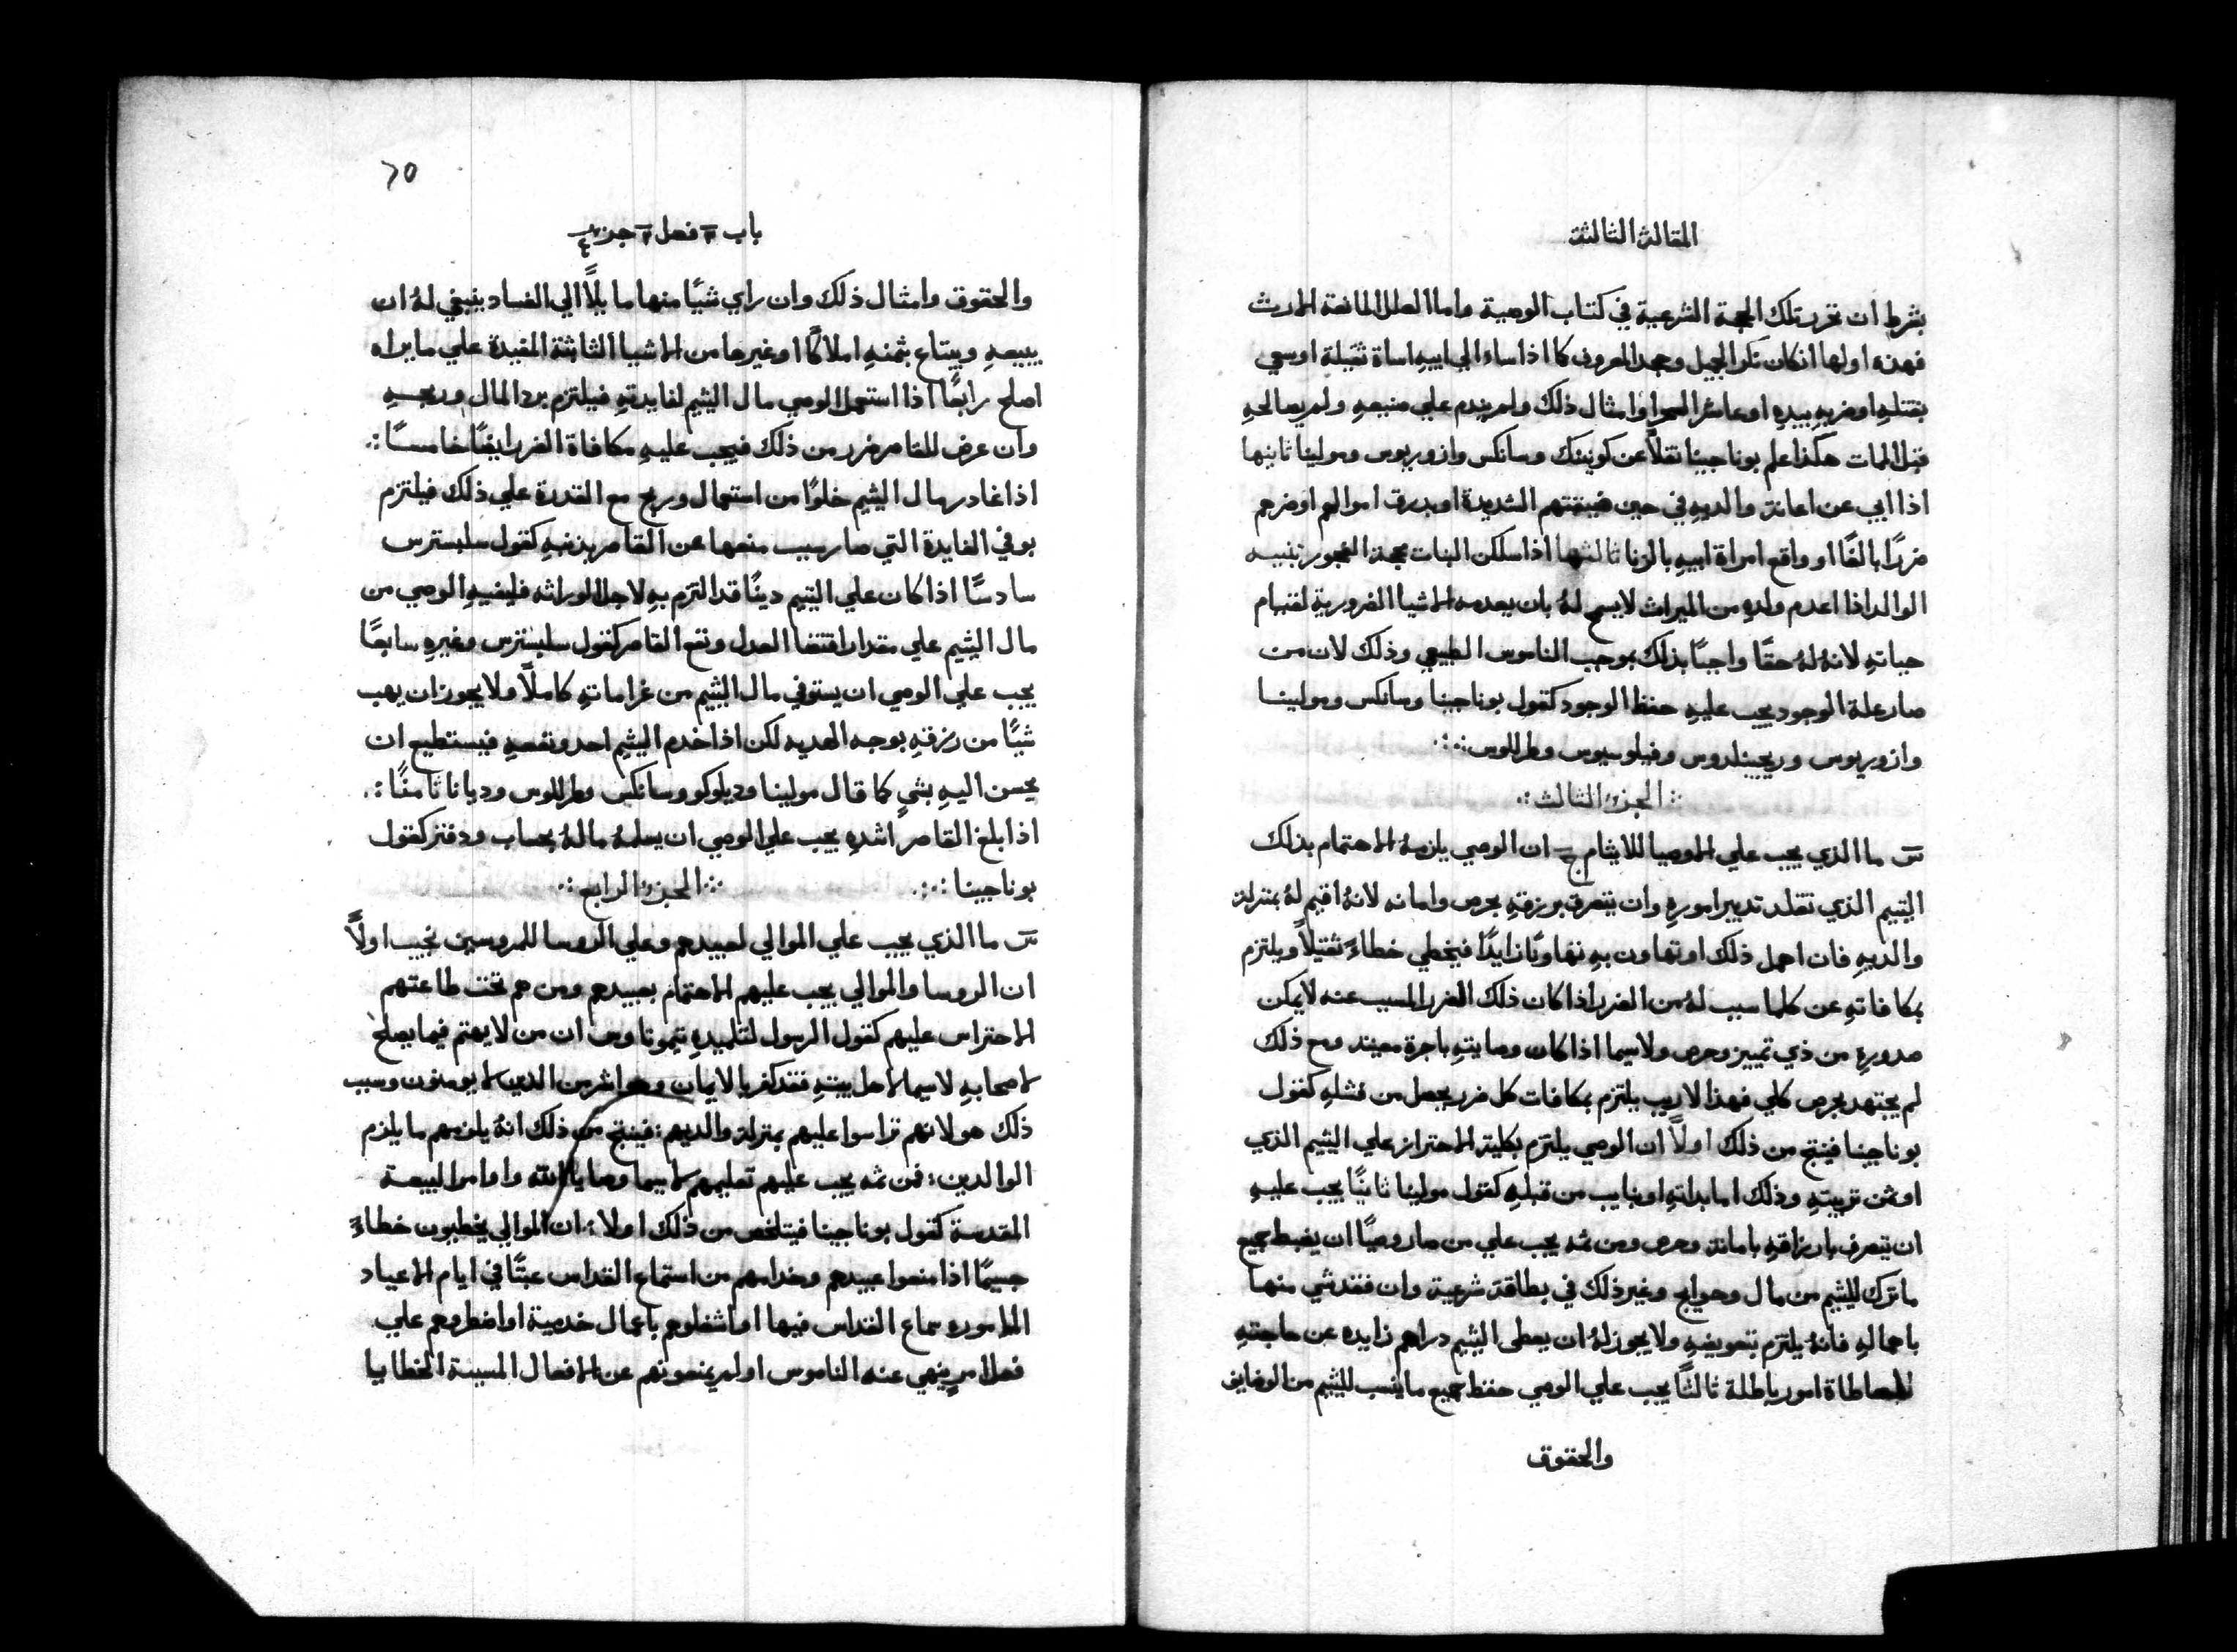 المقالة الثالثة
بشرط ان تحرر تلك الحجة الشرعية في كتاب الوصية واما العلل المانعة الارث
فهذه اولها ان كان نكر الجميل وجحد المعروف كما اذا ساء الي ابيه اساة ثقيلة او سعي
بقتله او ضربه بيده او عاشر السحرا وامثال ذلك ولم يندم علي صنيعه ولم يصالحه
قبل الممات هكذا علم بوناجينا نقلاً عن كونينك وسانكس وازوريوس ومولينا ثانيها
اذا ابي عن اعانة والديه في حين ضيقتهم الشديدة او بدرق اموالهم او ضرهم
ضررًا بالغًا او واقع امراة ابيه بالزنا ثالثها اذا سلكن البنات محجة الفجور تنبيه
الوالد اذا اعدم ولده من الميراث لا يسمح لهُ بان يعدمه الاشيا الضرورية لقيام
حياته لانهُ لهُ حقًا واجبًا بذلك بموجب الناموس الطبيعي وذلك لان من
صار علة الوجود يجب عليه حفظ الوجود كقول بوناجينا وسانكس ومولينا
وازوريوس وريجينلدوس وفيلوسيوس وطرللوس
الجزء الثالث
س ما الذي يجب علي الاوصيا للايتام ج ان الوصي يلزمهُ الاهتمام بذلك
اليتيم الذي تقلد تدبير اموره وان يتصرف برزقه بحرص وامانه لانهُ اقيم لهُ بمنزلة
والديه فان اهمل ذلك او تهاون به تهاونًا زايدًا فيخطي خطاءً ثقيلاً ويلتزم
بمكافاته عن كلما سبب لهُ من الضرر اذا كان ذلك الضرر المسبب عنه لا يمكن
صدوره من ذي تمييز وحرص ولا سيما اذا كان وصايته باجرة معينه ومع ذلك
لم يجتهد بحرص كلي فهذا لا ريب يلتزم بمكافات كل ضرر يحصل من فشله كقول
بوناجينا فينتج من ذلك اولاً ان الوصي يلتزم بكلية الاحتراز علي اليتيم الذي
اوتمن تربيته وذلك اما بذاته او بنايب من قبله كقول مولينا ثانيًا يجب عليه
ان يتصرف بارزاقه بامانة وحرص ومن ثمه يجب علي من صار وصيًا ان يضبط جميع
ما ترك لليتيم من مال وحوايج وغير ذلك في بطاقة شرعية وان فقد شي منها
باهماله فانهُ يلتزم بتعويضه ولا يجوز لهُ ان يعطي اليتيم دراهم زايده عن حاجته
لمعاطاة امور باطلة ثالثًا يجب علي الوصي حفظ جميع ما ينسب لليتيم من الوظايف
والحقوق
٦٥
باب فصل جزء ٤
والحقوق وامثال ذلك وان راي شيًا منها مايلاً الي الفساد ينبغي لهُ ان
يبيعه ويبتاع بثمنه املاكًا او غيرها من الاشيا الثابتة المفيدة علي ما يراه
اصلح رابعًا اذا استعمل الوصي مال اليتيم لفايدته فيلتزم برد المال وربحه
وان عرض للقاصر ضرر من ذلك فيجب عليه مكافاة الضرر ايضًا خامسًا
اذا غادر مال اليتيم خلوًا من استعمال وربح مع القدرة علي ذلك فيلتزم
بوفي الفايدة التي صار سبب منعها عن القاصر بذنبه كقول سلبسترس
سادسًا اذا كان علي اليتيم دينًا قد التزم به لاجل الوراثه فليفيه الوصي من
مال اليتيم علي مقدار اقتضا العدل ونفع القاصر كقول سلبسترس وغيره سابعًا
يجب علي الوصي ان يستوفي مال اليتيم من غراماته كاملاً ولا يجوز ان يهب
شيًا من رزقه بوجه الهديه لكن اذا خدم اليتيم احد ونفعه فيستطيع ان
يحسن اليه بشيٍ كما قال مولينا وديلوكو وسانكس وطرللوس وديانا ثامنًا
اذا بلغ القاصر اشده يجب علي الوصي ان يسلمهُ مالهُ بحساب ودفتر كقول
بوناجينا الجزء الرابع
س ما الذي يجب علي الموالي لعبيدهم وعلي الروسا للمروسين نجيب اولاً
ان الروسا والموالي يجب عليهم الاهتمام بعبيدهم ومن هم تحت طاعتهم
الاحتراس عليهم كقول الرسول لتلميذه تيموتاوس ان من لا يهتم فيما يصلح
لاصحابه لا سيما لاهل بيته فقد كفر بالايمان وهو اشر من الذين لا يومنون وسبب
ذلك هو لانهم تراسوا عليهم بمنزلة والديهم فينتج من ذلك انهُ يلزمهم ما يلزم
الوالدين فمن ثمه يجب عليهم تعليمهم لا سيما وصايا الله واوامر البيعة
المقدسة كقول بوناجينا فيتلخص من ذلك اولا ان الموالي يخطيون خطاءً
جسيمًا اذا منعوا عبيدهم وخدامهم من استماع القداس عبثًا في ايام الاعياد
المامورة سماع القداس فيها او اشغلوهم باعمال خدمية او اضطروهم علي
فعل امرٍ ينهي عنه الناموس او لم يمنعونهم عن الافعال المسببة الخطايا